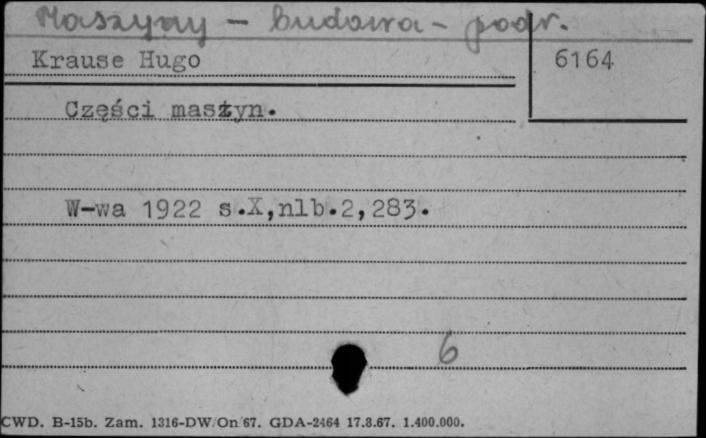 Maszyny - budowa - podr.
Krause Hugo
6164
Części maszyn.
W-wa 1922 s.X,nlb.2,283.
6
CWD. B-15b. Zam. 1316-DW/On/67. GDA-2464 17.8.67. 1.400.000.